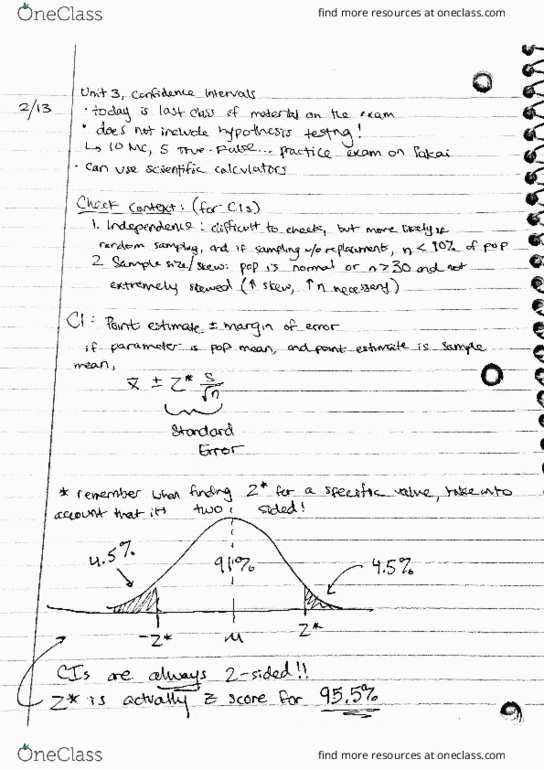 OneClass
find more resources at oneclass.com
2/13
Unit 3, Confidence Intervals
• today is last class of material on the exam
• does not include hypothesis testng!
↳ 10 MC, 5 True-False... practice exam on Sakai
• can use scientific calculators
Check Context: (for CIs)
1. Independence: difficult to check, but more likely if
random sampling, and if sampling w/o replacment, n < 10% of pop
2 Sample size/skew: pop is normal or n > 30 and not
extremely skewed (↑ skew, ↑ n necessary)
CI: Point estimate ± margin of error
if parameter is pop mean, and point estimate is sample
mean,
x̄ ± Z* s/√n
Standard
Error
* remember when finding Z* for a specific value, take into
account that it's two sided!
4.5%
91%
4.5%
-Z*
μ
Z*
CIs are always 2-sided!!
Z* is actually Z score for 95.5%
OneClass
find more resources at oneclass.com